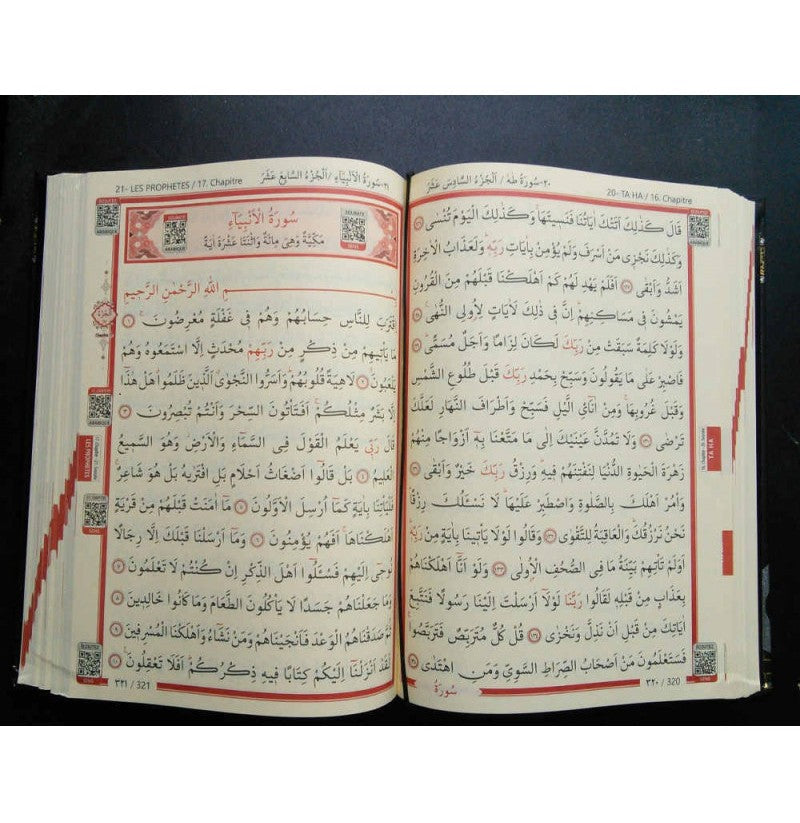 20- TA HA / 16. Chapitre ٢٠-سُورَةُ طٰهٰ / اَلْجُزْءُ السَّادِسَ عَشَرَ
قَالَ كَذٰلِكَ اَتَتْكَ اٰيَاتُنَا فَنَسٖيتَهَاۚ وَكَذٰلِكَ الْيَوْمَ تُنْسٰى ﴿١٢٦﴾
وَكَذٰلِكَ نَجْزٖى مَنْ اَسْرَفَ وَلَمْ يُؤْمِنْ بِاٰيَاتِ رَبِّهٖۜ وَلَعَذَابُ الْاٰخِرَةِ
اَشَدُّ وَاَبْقٰى ﴿١٢٧﴾ اَفَلَمْ يَهْدِ لَهُمْ كَمْ اَهْلَكْنَا قَبْلَهُمْ مِنَ الْقُرُونِ
يَمْشُونَ فٖى مَسَاكِنِهِمْۜ اِنَّ فٖى ذٰلِكَ لَاٰيَاتٍ لِاُولِى النُّهٰى ﴿١٢٨﴾
وَلَوْلَا كَلِمَةٌ سَبَقَتْ مِنْ رَبِّكَ لَكَانَ لِزَامًا وَاَجَلٌ مُسَمًّى ﴿١٢٩﴾
فَاصْبِرْ عَلٰى مَا يَقُولُونَ وَسَبِّحْ بِحَمْدِ رَبِّكَ قَبْلَ طُلُوعِ الشَّمْسِ
وَقَبْلَ غُرُوبِهَاۚ وَمِنْ اٰنَآئِ الَّيْلِ فَسَبِّحْ وَاَطْرَافَ النَّهَارِ لَعَلَّكَ
تَرْضٰى ﴿١٣٠﴾ وَلَا تَمُدَّنَّ عَيْنَيْكَ اِلٰى مَا مَتَّعْنَا بِهٖٓ اَزْوَاجًا مِنْهُمْ
زَهْرَةَ الْحَيٰوةِ الدُّنْيَا لِنَفْتِنَهُمْ فٖيهِۜ وَرِزْقُ رَبِّكَ خَيْرٌ وَاَبْقٰى ﴿١٣١﴾
وَأْمُرْ اَهْلَكَ بِالصَّلٰوةِ وَاصْطَبِرْ عَلَيْهَاۜ لَا نَسْـَٔلُكَ رِزْقًاۜ
نَحْنُ نَرْزُقُكَۜ وَالْعَاقِبَةُ لِلتَّقْوٰى ﴿١٣٢﴾ وَقَالُوا لَوْلَا يَأْتٖينَا بِاٰيَةٍ مِنْ رَبِّهٖۜ
اَوَلَمْ تَأْتِهِمْ بَيِّنَةُ مَا فِى الصُّحُفِ الْاُولٰى ﴿١٣٣﴾ وَلَوْ اَنَّٓا اَهْلَكْنَاهُمْ
بِعَذَابٍ مِنْ قَبْلِهٖ لَقَالُوا رَبَّنَا لَوْلَٓا اَرْسَلْتَ اِلَيْنَا رَسُولًا فَنَتَّبِعَ
اٰيَاتِكَ مِنْ قَبْلِ اَنْ نَذِلَّ وَنَخْزٰى ﴿١٣٤﴾ قُلْ كُلٌّ مُتَرَبِّصٌ فَتَرَبَّصُواۚ
فَسَتَعْلَمُونَ مَنْ اَصْحَابُ الصِّرَاطِ السَّوِىِّ وَمَنِ اهْتَدٰى ﴿١٣٥﴾
سُورَةُ
٣٢٠ / 320
TA HA
21- LES PROPHETES / 17. Chapitre ٢١-سُورَةُ الْاَنْبِيَاءِ / اَلْجُزْءُ السَّابِعَ عَشَرَ
سُورَةُ الْاَنْبِيَٓاءِ
مَكِّيَّةٌ وَهِىَ مِائَةٌ وَاثْنَتَا عَشْرَةَ اٰيَةً
بِسْمِ اللّٰهِ الرَّحْمٰنِ الرَّحٖيمِ
اِقْتَرَبَ لِلنَّاسِ حِسَابُهُمْ وَهُمْ فٖى غَفْلَةٍ مُعْرِضُونَۚ ﴿١﴾
مَا يَأْتٖيهِمْ مِنْ ذِكْرٍ مِنْ رَبِّهِمْ مُحْدَثٍ اِلَّا اسْتَمَعُوهُ وَهُمْ
يَلْعَبُونَۙ ﴿٢﴾ لَاهِيَةً قُلُوبُهُمْۜ وَاَسَرُّوا النَّجْوٰىۗ اَلَّذٖينَ ظَلَمُواۗ هَلْ هٰذَٓا
اِلَّا بَشَرٌ مِثْلُكُمْۚ اَفَتَأْتُونَ السِّحْرَ وَاَنْتُمْ تُبْصِرُونَ ﴿٣﴾
قَالَ رَبّٖى يَعْلَمُ الْقَوْلَ فِى السَّمَٓاءِ وَالْاَرْضِۘ وَهُوَ السَّمٖيعُ
الْعَلٖيمُ ﴿٤﴾ بَلْ قَالُٓوا اَضْغَاثُ اَحْلَامٍ بَلِ افْتَرٰيهُ بَلْ هُوَ شَاعِرٌۚ
فَلْيَأْتِنَا بِاٰيَةٍ كَمَٓا اُرْسِلَ الْاَوَّلُونَ ﴿٥﴾ مَٓا اٰمَنَتْ قَبْلَهُمْ مِنْ قَرْيَةٍ
اَهْلَكْنَاهَاۚ اَفَهُمْ يُؤْمِنُونَ ﴿٦﴾ وَمَٓا اَرْسَلْنَا قَبْلَكَ اِلَّا رِجَالًا
نُوحٖٓى اِلَيْهِمْ فَسْـَٔلُٓوا اَهْلَ الذِّكْرِ اِنْ كُنْتُمْ لَا تَعْلَمُونَ ﴿٧﴾
وَمَا جَعَلْنَاهُمْ جَسَدًا لَا يَأْكُلُونَ الطَّعَامَ وَمَا كَانُوا خَالِدٖينَ ﴿٨﴾
ثُمَّ صَدَقْنَاهُمُ الْوَعْدَ فَاَنْجَيْنَاهُمْ وَمَنْ نَشَٓاءُ وَاَهْلَكْنَا الْمُسْرِفٖينَ ﴿٩﴾
لَقَدْ اَنْزَلْنَٓا اِلَيْكُمْ كِتَابًا فٖيهِ ذِكْرُكُمْۜ اَفَلَا تَعْقِلُونَ ﴿١٠﴾
٣٢١ / 321
LES PROPHETES